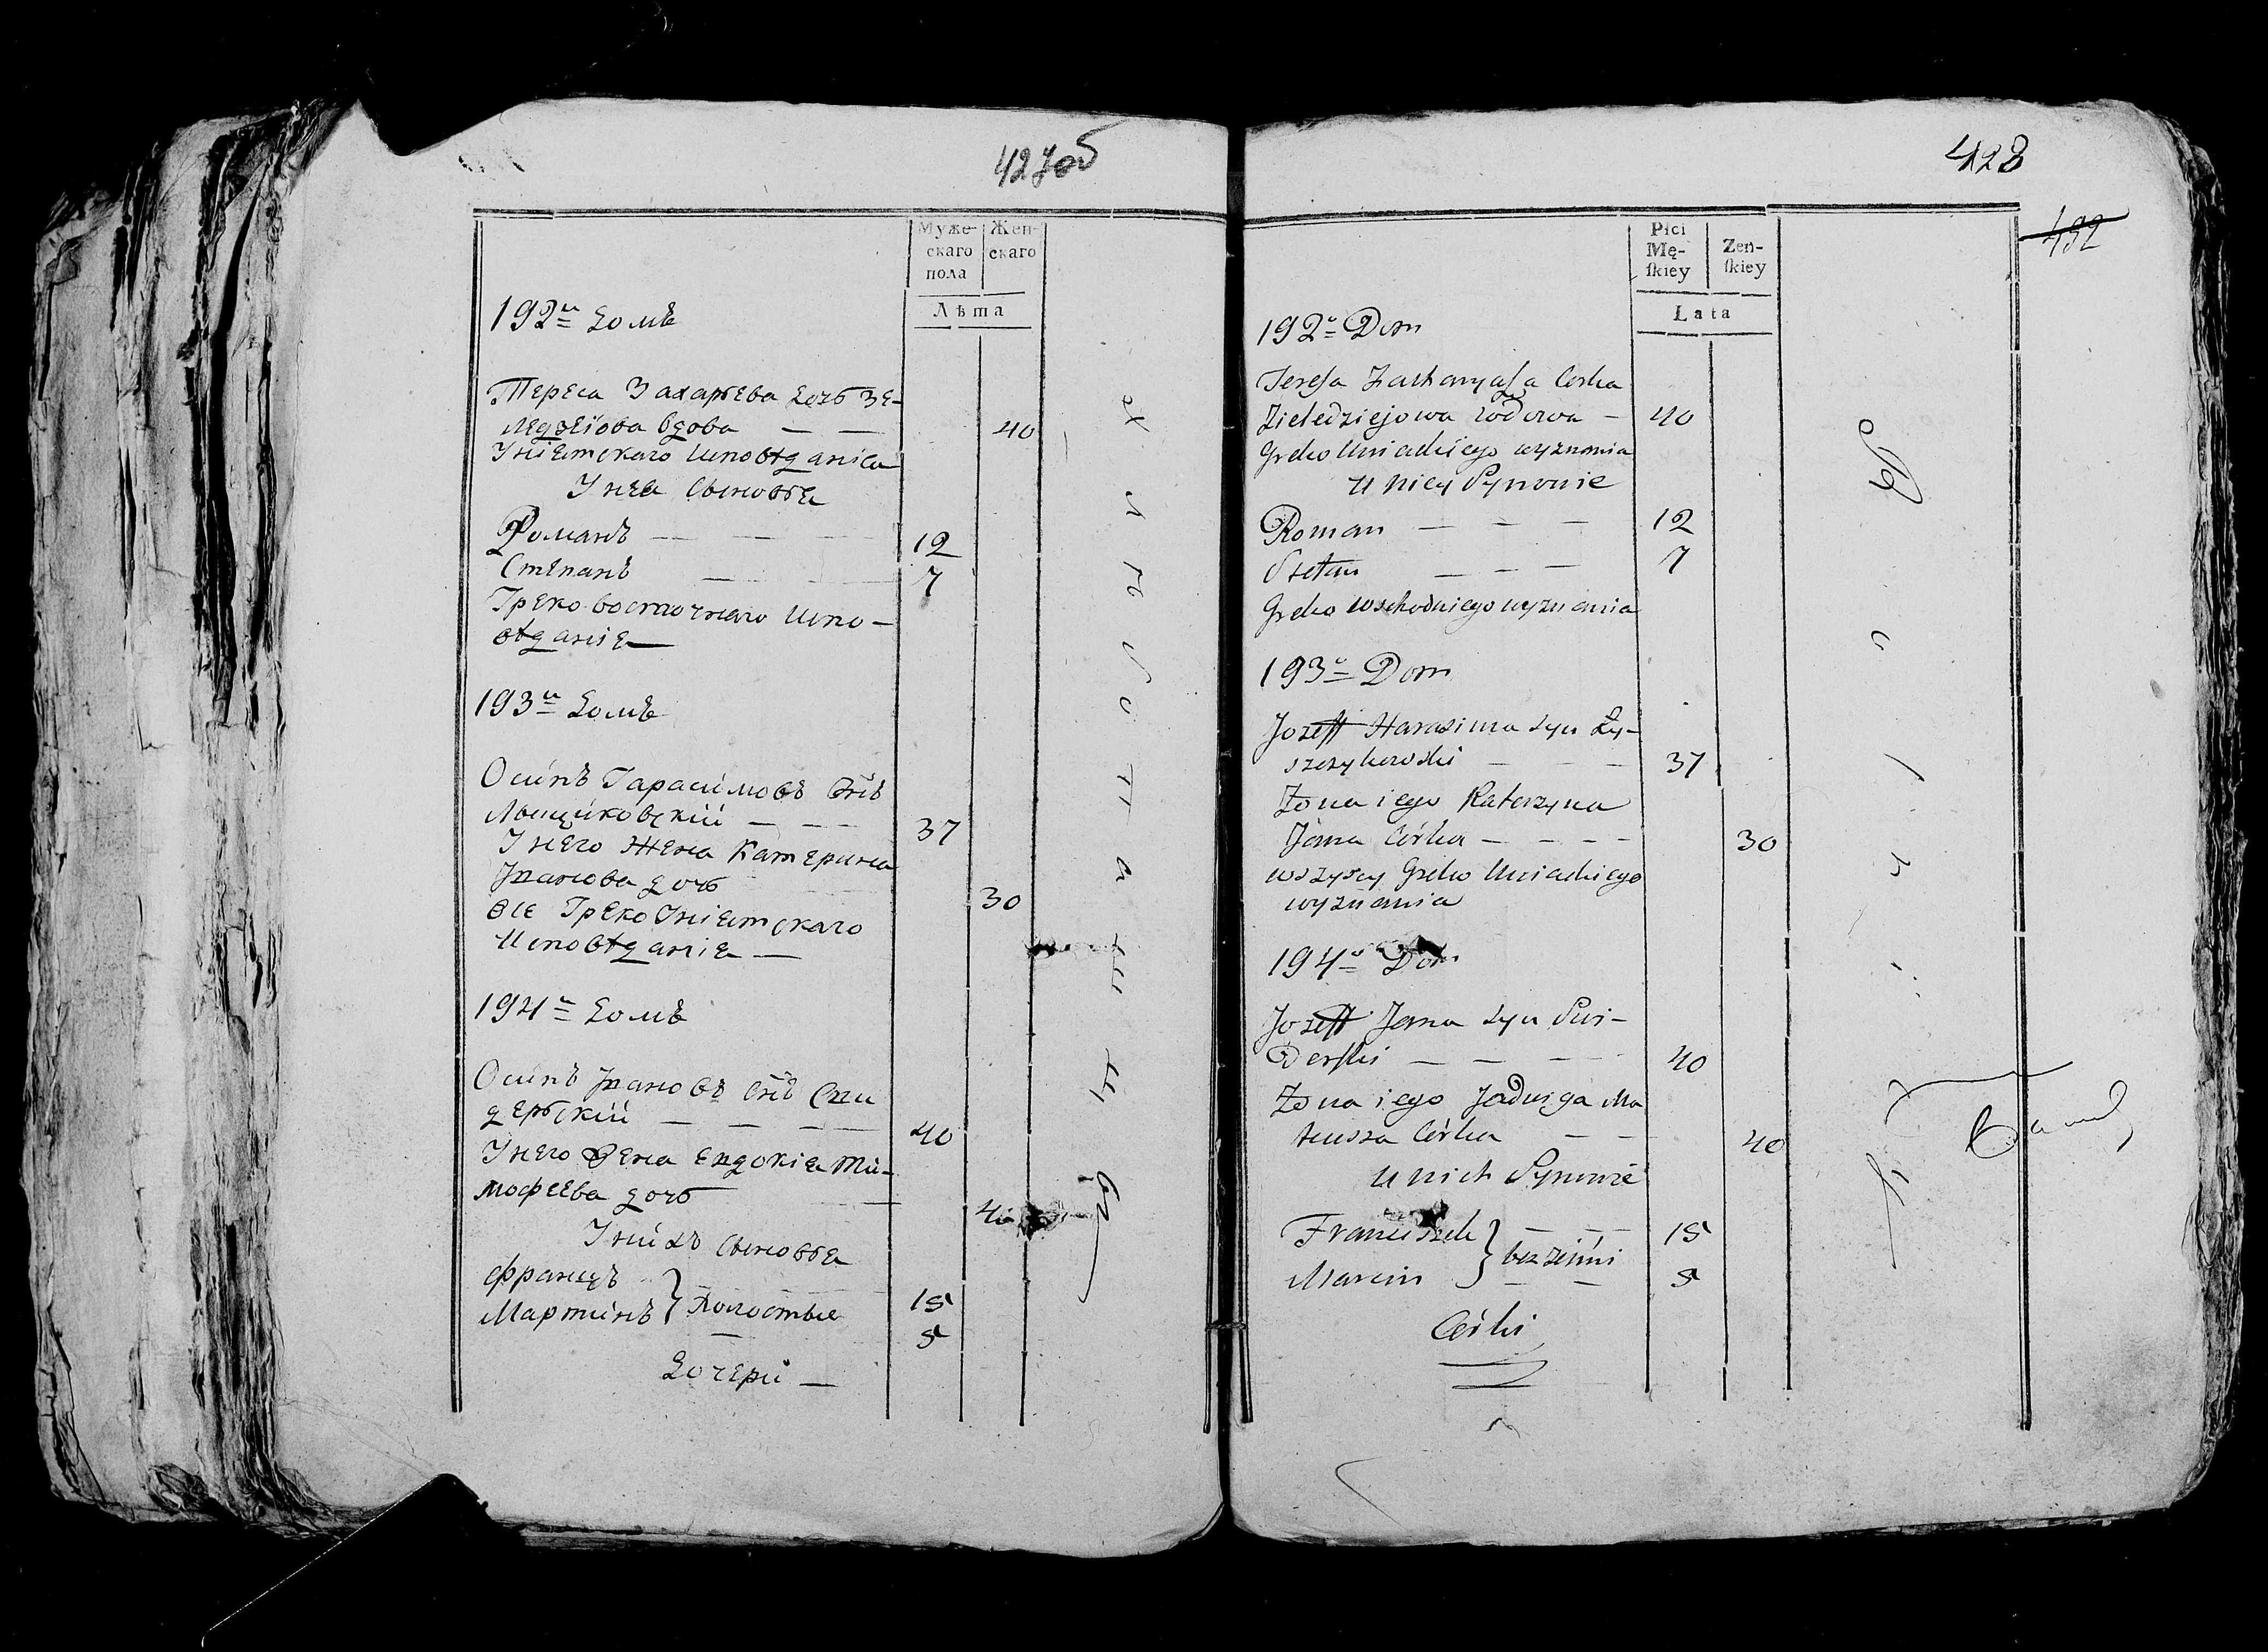 427об
Муже-
скаго
пола
Жен-
скаго
Лѣта
192й домъ
Тереса Захарьева дочь Зе-
ледзеiова вдова — — 40
Унiятскаго исповѣданiя
У нея сыновья
Романъ — — — 12
Степанъ — — 7
Греко восточнаго испо-
вѣданiя
193й домъ
Осипъ Гарасимовъ снъ
Лыщиковскiй — — — 37
У него жена Катерина
Иванова дочь 30
Все Греко Унiятскаго
исповѣданiя —
194й домъ
Осипъ Ивановъ снъ Сви
дерскiй — — — 40
У него жена Евдокiя Ти-
мофеева дочь — 40
У нихъ сыновья
Францъ
Мартинъ } холостые 15
5
Дочери —
428
492
Płci
Mę-
ſkiey
Zeń-
ſkiey
Lata
192o Dom
Teresa Zacharyasza Corka
Zieledziejowa wdowa — 40
Greko Uniackiego wyznania
U niey Synowie
Roman — — — 12
Stefan — — — 7
Greko wschodniego wyznania
193o Dom
Jozeff Harasima syn Ły-
szczykowski — — — 37
Żona iego Katerzyna
Jana Córka — — — 30
wszyscy Greko Uniackiego
wyznania
194o Dom
Jozeff Jana syn Swi-
derski — — — 40
Żona iego Jadwiga Ma
teusza Córka — — 40
U nich Synowie
Franciszek — — 15
Marcin } bezżenni — — 5
Córki